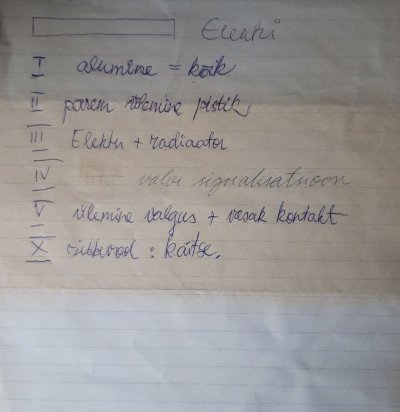 Elektri
I alumine = kõik
II parem ülemine plotik
III Elektri + radiaator
IV valve signalisatsioon
V ülemine valgus + vasak kontakt
X
: kaitse.